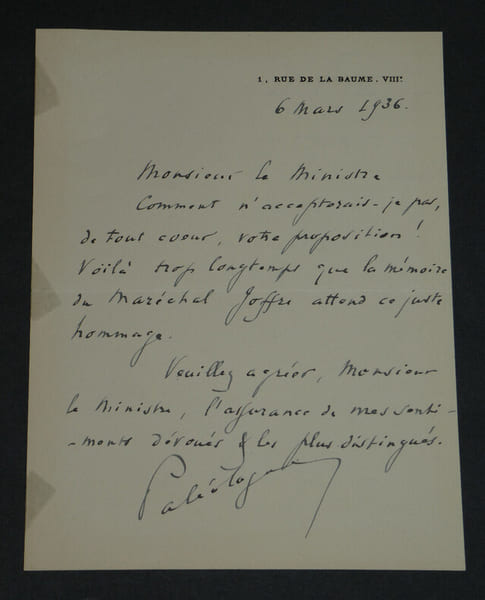 1, RUE DE LA BAUME. VIIIᵉ
6 Mars 1936.
Monsieur le Ministre
Comment n'accepterais-je pas,
de tout coeur, votre proposition!
Voilà trop longtemps que la mémoire
du Maréchal Joffre attend ce juste
hommage.
Veuillez agréer, Monsieur
le Ministre, l'assurance de mes senti-
-ments dévoués & les plus distingués.
Paléologue